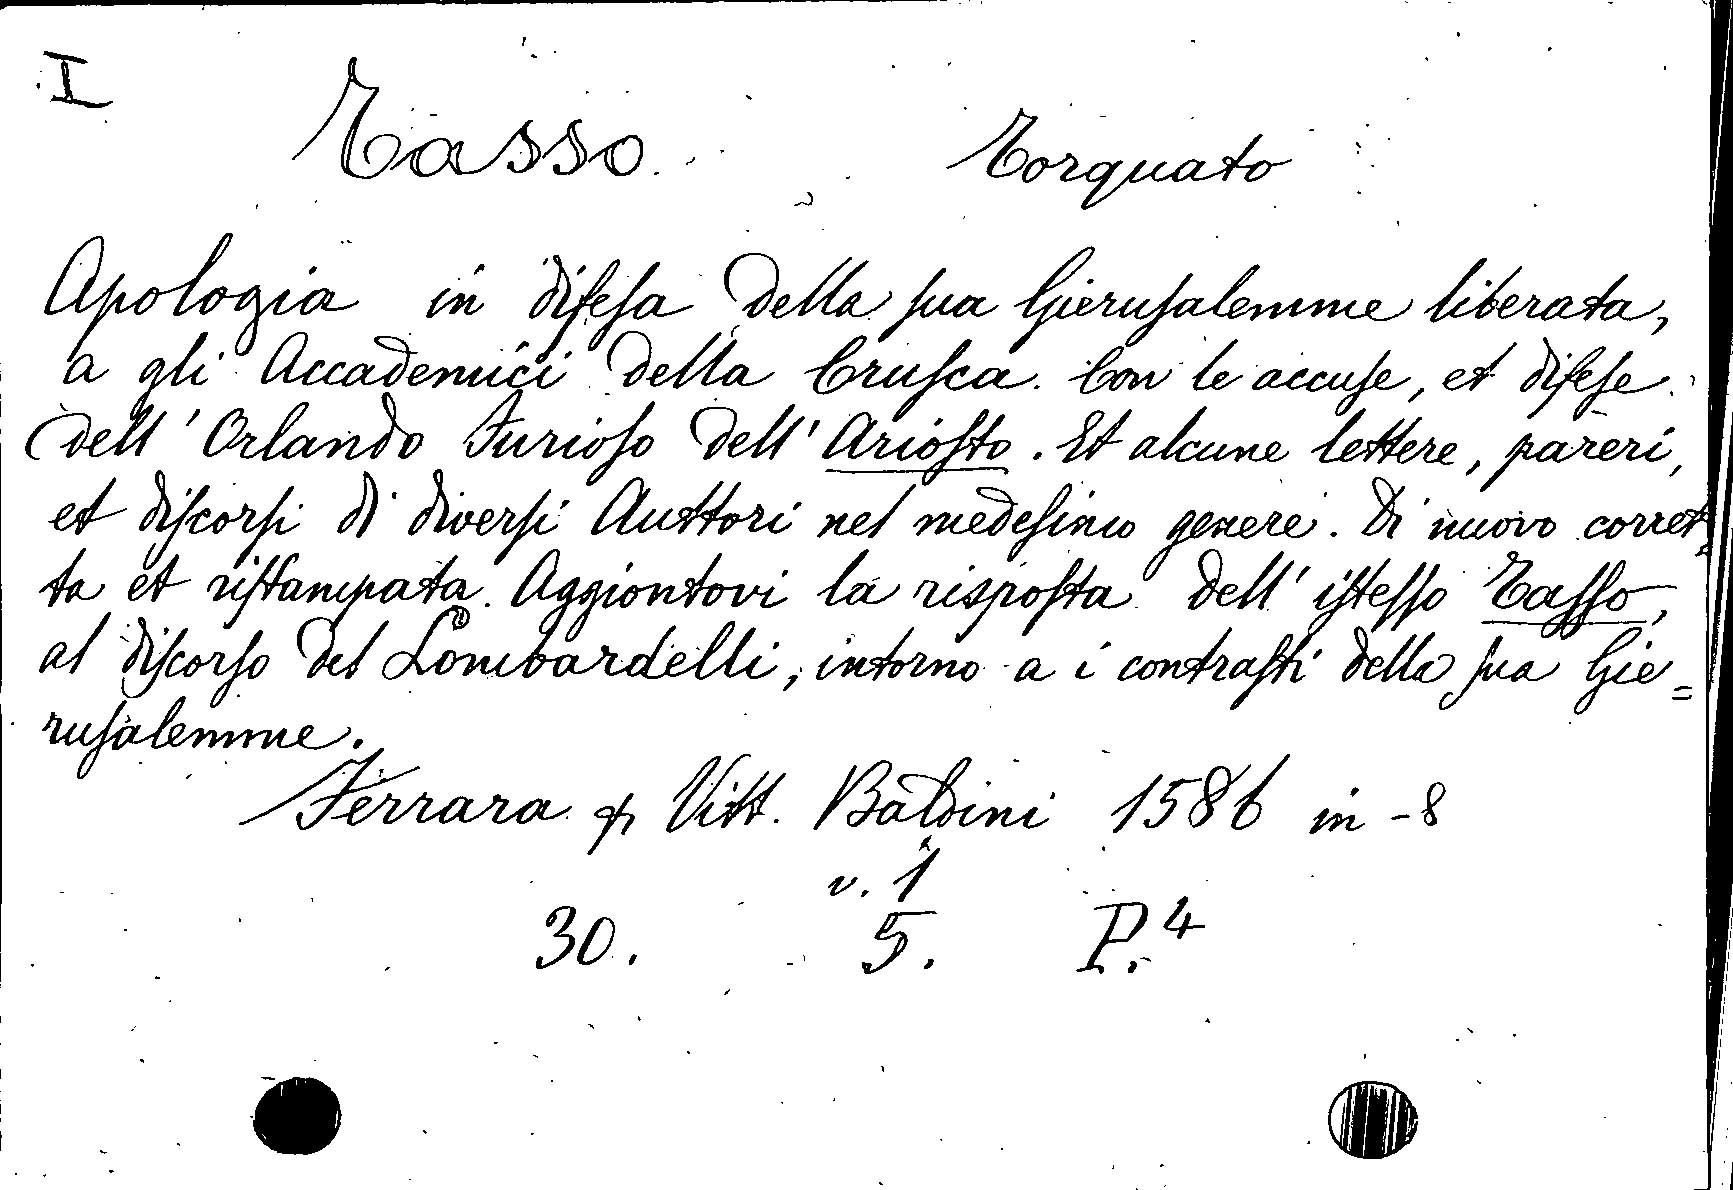 I
Tasso Torquato
Apologia in difeſa della ſua Gieruſalemme liberata,
a gli Accademici della Cruſca. Con le accuſe, et difeſe
dell' Orlando Furioſo dell' Arioſto. Et alcune lettere, pareri,
et diſcorſi di diverſi Auttori nel medeſimo genere. Di nuovo corret=
ta et riſtampata. Aggiontovi la riſpoſta dell' iſteſſo Taſſo,
al diſcorſo del Lombardelli, intorno a i contraſti della ſua Gie=
ruſalemme.
Ferrara Vitt. Baldini 1586 in-8
v. 1
30. 5. P.4